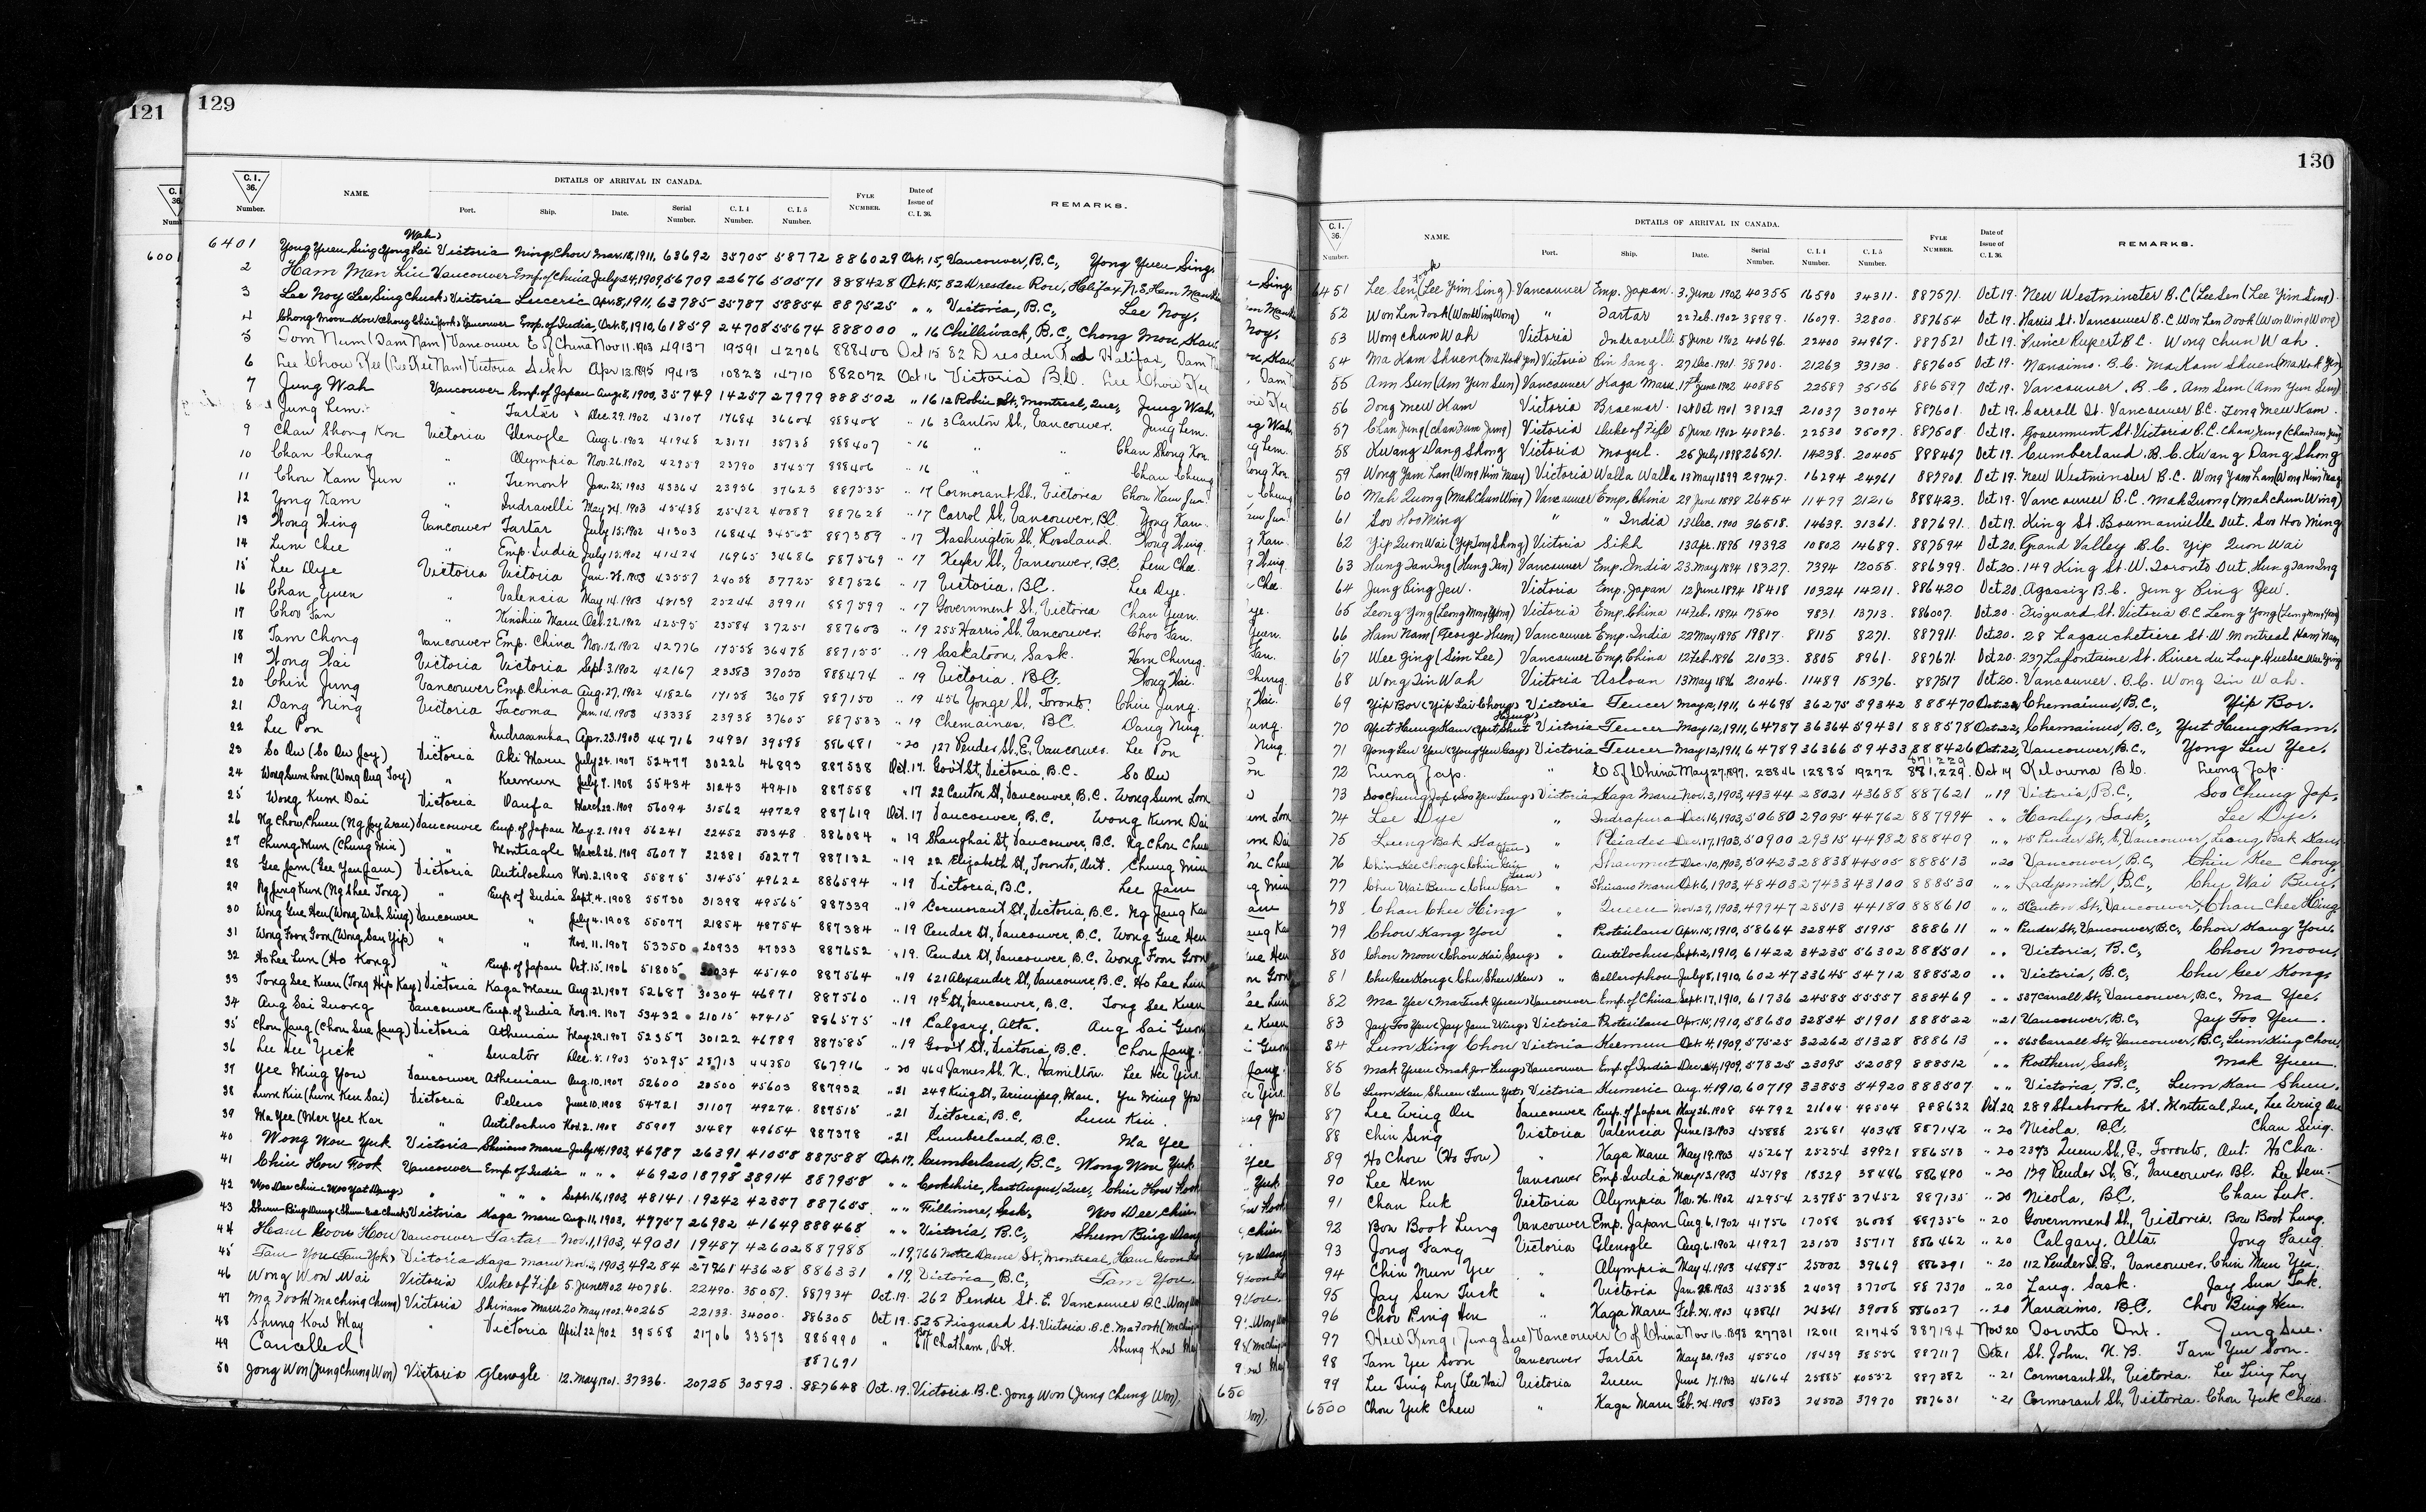 121
129
C. I. 36. Number.
NAME.
DETAILS OF ARRIVAL IN CANADA.
Port. Ship. Date. Serial Number. C. I. 4 Number. C. I. 5 Number.
FYLE NUMBER.
Date of Issue of C. I. 36.
REMARKS.
6001
6401 Yong Yuen Sing (Yong Kai Wah) Victoria Ning Chow Mar. 18, 1911, 63692 35705 58772 886029 Oct. 15, Vancouver, B.C., Yong Yuen Sing.
2 Ham Man Lin Vancouver Emp. of China July 24, 1909, 56709 22676 50571 888428 Oct. 15, 82 Dresden Row, Halifax, N.S.
3 Lee Noy (Lee Sing Chuck) Victoria Luceric Apr. 8, 1911, 63785 35787 58854 887525 " " Victoria, B.C., Lee Noy.
4 Vancouver Emp. of India, Oct. 8, 1910, 61859 24708 55674 888000 " 16 Chilliwack, B.C.,
5 Tom Num (Tam Nam) Vancouver E of China Nov 11. 1903 49137 19591 42706 888400 Oct 15 82 Dresden Halifax,
6 Lee Chow Kee (Lee Kee Nam) Victoria Sikh Apr 13. 1895 19413 10823 14710 882072 Oct 16 Victoria B.C. Lee Chow Kee
7 Jung Wah Vancouver Emp. of Japan Aug. 8, 1900, 35749 14257 27979 888502 " 16 12 Robin St, Montreal, Que, Jung Wah.
8 Jung Lem. " Tartar Dec. 29. 1902 43107 17684 36604 888408 " 16 3 Canton St., Vancouver. Jung Lem.
9 Chan Shong Kou Victoria Glenogle Aug. 6. 1902 41948 23171 35738 888407 " 16 " " Chan Shong Kou.
10 Chan Chung " Olympia Nov. 26. 1902 42959 23790 37457 888406 " 16 Chan Chung
11 Chou Kam Jun " Tremont Jan. 25. 1903 43364 23956 37623 887535 " 17 Cormorant St., Victoria Chou Kam Jun.
12 Yong Kam " Indravelli May 24. 1903 45438 25422 40089 887628 " 17 Carrol St, Vancouver, B.C. Yong Kam.
13 Wong Hing Vancouver Tartar July 15. 1902 41303 16844 34565 887389 " 17 Washington St, Rossland.
14 Lum Chee " Emp. India July 15. 1902 41424 16965 34686 887569 " 17 Keefer St., Vancouver, B.C. Lum Chee.
15 Lee Dye Victoria Victoria Jan. 28. 1903 43557 24058 37725 887526 " 17 Victoria, B.C. Lee Dye.
16 Chan Yuen " Valencia May 14. 1903 25244 39911 887599 " 17 Government St., Victoria Chan Yuen.
17 Choo Fan " Kinshiu Maru Oct. 22. 1902 42595 23584 37251 887603 " 19 255 Harris St. Vancouver. Choo Fan.
18 Tam Chong Vancouver Emp. China Nov. 12. 1902 42776 17558 36478 887155 " 19 Saskatoon, Sask.
19 Wong Wai Victoria Victoria Sept. 3. 1902 42167 23383 37050 888474 " 19 Victoria. B.C. Wong Wai.
20 Chin Jung Vancouver Emp. China Aug. 27. 1902 41826 17158 36078 887150 " 19 456 Yonge St., Toronto. Chin Jung.
21 Dang Ning Victoria Tacoma Jan. 14. 1903 43338 23938 37605 887533 " 19 Chemainus, B.C. Dang Ning.
22 Lee Pon " Indrasamha Apr. 23. 1903 44716 24931 39598 886481 " 20 127 Pender St. E. Vancouver. Lee Pon
23 So Ow (So Ow Joy) Victoria Aki Maru July 24. 1907 52477 30226 46893 887538 Oct. 17. Gov't St, Victoria, B.C. So Ow
24 Wong Sum Lom (Wong Aug Toy) " Keemun July 7. 1908 55434 31243 49410 887558 " 17 22 Canton St, Vancouver, B.C. Wong Sum Lom
25 Wong Kum Dai Victoria Oanfa March 22. 1909 56094 31562 49729 887619 Oct. 17 Vancouver, B.C. Wong Kum Dai
26 Ng Chow Chuen Vancouver Emp. of Japan May. 2. 1909 56241 22452 50348 886084 " 19 Shanghai St, Vancouver, B.C.
27 Chung Mun (Chung Min) " Monteagle March 26. 1909 56077 22381 50277 887132 " 19 22 Elizabeth St, Toronto, Ont. Chung Mun
28 Victoria Antilochus Nov. 2. 1908 55875 31455 49622 886594 " 19 Victoria, B.C.
29 Emp. of India Sept. 4. 1908 55730 31398 49565 887339 " 19 Cormorant St, Victoria, B.C.
30 Wong Gue Hen (Wong Wah Sing) Vancouver " July 4. 1908 55077 21854 48754 887384 " 19 Pender St, Vancouver, B.C. Wong Gue Hen
31 Wong Foon Goon (Wong San Yip) " " Nov. 11. 1907 53350 20933 47333 887652 " 19. Pender St, Vancouver, B.C.
32 Ho Lee Lun (Ho Kong) " Emp. of Japan Oct. 15. 1906 51805 20034 45140 887564 " 19 621 Alexander St, Vancouver B.C. Ho Lee Lun
33 Tong See Kuen (Tong Hip Kay) Victoria Kaga Maru Aug. 21. 1907 52687 30304 46971 887560 " 19 19th St, Vancouver, B.C. Tong See Kuen
34 Aug Sai Quong Vancouver Emp. of India Nov. 19. 1907 53432 21015 47415 886575 " 19 Calgary, Alta.
35 Chou Jang (Chou Sue Jang) Victoria Athenian May 29. 1907 52357 30122 46789 887585 " 19 Gov't St, Victoria, B.C. Chou Jang
36 Lee Hee Yick " Senator Dec. 5. 1903 50295 28713 44380 867916 " 20 464 James St. N., Hamilton.
37 Yee Ming You Vancouver Athenian Aug. 10. 1907 52600 20500 45603 887932 " 21 249 King St, Winnipeg, Man.
38 Lum Kin (Lum Ken Sai) Victoria Peleus June 10. 1908 54721 31107 49274 887515 " 21 Victoria, B.C. Lum Kin.
39 Ma Yee (Mar Yee Kar " Antilochus Nov. 2. 1908 55907 31487 49654 887378 " 21 Cumberland, B.C. Ma Yee
40 Wong Wou Yuk Victoria Shinano Maru July 14, 1903, 46787 26391 41058 887588 Oct. 17, Cumberland, B.C., Wong Wou Yuk
41 Chin How Fook Vancouver Emp. of India " " " 46920 18798 38914 887958 " " Cookshire, East Angus, Que, Chin How Fook
42 Woo Dee Chin " " Sept. 16, 1903, 48141 19242 42357 887655 " " Fillimore, Sask, Woo Dee Chin
43 Victoria Kaga Maru Aug. 11, 1903, 47757 26982 41649 888468 " " Victoria, B.C.,
44 Ham Goon Hou Vancouver Tartar Nov. 1, 1903, 49031 19487 42602 887988 " 19, 766 Notre Dame St, Montreal,
45 Tam You (Tam Yok) Victoria Kaga Maru Nov. 2, 1903, 49284 27961 43628 886331 " 19, Victoria, B.C., Tam You.
46 Wong Won Wai Victoria Duke of Fife 5. June 1902 40786. 22490. 35057. 887934 Oct. 19. 262 Pender St. E. Vancouver B.C.
47 Ma Fooh (Ma Ching Chung) Victoria Shinano Maru 20 May 1902. 40265 22133. 34000. 886305 Oct 19. 525 Fisguard St. Victoria. B.C.
48 Shung Kow May " Victoria April 22/902 39558 21706 33573 885990 " Chatham, Ont. Shung Kow May
49 Cancelled 887691
50 Jong Won (Jung Chung Won) Victoria Glenogle 12. May 1901. 37336. 20725 30592. 887648 Oct. 19. Victoria B.C. Jong Won (Jung Chung Won).
130
C. I. 36. Number.
NAME.
DETAILS OF ARRIVAL IN CANADA.
Port. Ship. Date. Serial Number. C. I. 4 Number. C. I. 5 Number.
FYLE NUMBER.
Date of Issue of C. I. 36.
REMARKS.
6451 Lee Sen (Lee Yim Sing). Vancouver Emp. Japan. 3. June 1902 40355 16590 34311. 887571. Oct 19. New Westminster B.C (Lee Sen (Lee Yim Sing).
52 Won Len Fook (Won Wing Wong) " Tartar 22 Feb. 1902 38989. 16079. 32800. 887654 Oct 19. Harris St. Vancouver B.C. Won Len Fook (Won Wing Wong)
53 Wong Chun Wah Victoria Indravelli 5 June 1902 40696. 22400 34967. 887521 Oct 19. Prince Rupert B.C. Wong Chun Wah.
54 Ma Kam Shuen (Ma Hock Yin) Victoria Pin Sang. 27 Dec. 1901. 38700. 21263 33130. 887605 Oct 19. Nanaimo. B.C. Ma Kam Shuen
55 Ann Sun (Ann Yun Sun) Vancouver Kaga Maru. 17th June 1902 40885 22589 35156 886587 Oct 19. Vancouver, B.C. Ann Sun (Ann Yun Sun)
56 Tong Mew Kam Victoria Braemar. 1st Oct 1901 38129 21037 30904 887601. Oct 19. Carrall St. Vancouver BC. Tong Mew Kam.
57 Chan Jung (Chan Fum Jung) Victoria Duke of Fife 5 June 1902 40826. 22530 35097. 887508 Oct 19. Government St. Victoria B.C. Chan Jung
58 Kwang Dang Shong Victoria Mogul. 25 July 1898 26571. 14238. 20405 888467 Oct 19. Cumberland. B.C. Kwang Dang Shong
59 Wong Yam Lan (Wong Him May) Victoria Walla Walla 13 May 1899 29747. 16294 24961 887901. Oct 19. New Westminster B.C. Wong Yam Lan
60 Mah Quong (Mah Chun Wing) Vancouver Emp. China 29 June 1898 26454 11479 21216 888423. Oct 19. Vancouver B.C. Mah Quong (Mah Chun Wing)
61 Soo Hoo Ming " " India 13 Dec. 1900 36518. 14639. 31361. 887691. Oct 19. King St. Bowmanville Ont. Soo Hoo Ming
62 Yip Quon Wai (Yip Tong Shong) Victoria Sikh 13 Apr. 1895 19392 10802 14689. 887594 Oct 20. Grand Valley B.C. Yip Quon Wai
63 Hung Tan Ing (Hung Tan) Vancouver Emp. India 23 May 1894 18327. 7394 12055. 886399. Oct 20. 149 King St. W. Toronto Ont. Hung Tan Ing
64 Jung Bing Jew. Victoria Emp. Japan 12 June 1894 18418 10324 14211. 886420 Oct 20. Agassiz B.C. Jung Bing Jew.
65 Leong Yong (Leong Mong Yong) Victoria Emp. China 14 Feb. 1894 17540 9831 13713. 886007. Oct 20. Fisguard St. Victoria B.C. Leong Yong
66 Ham Nam (George Hum) Vancouver Emp. India 22 May 1895 19817. 8115 8271. 887911. Oct 20. 28 Lagauchetiere St. W. Montreal Ham Nam
67 Wee Ging (Sim Lee) Vancouver Emp. China 12 Feb. 1896 21033. 8805 8961. 887671. Oct 20. 237 Lafontaine St. River du Loup. Quebec
68 Wong Tin Wah Victoria Asloun 13 May 1896 21046. 11489 15376. 887517 Oct 20. Vancouver. B.C. Wong Tin Wah.
69 Yip Bor (Yip Lai Chong) Victoria Teucer May 12, 1911, 64698 36275 59342 888470 Oct. 22, Chemainus, B.C., Yip Bor.
70 Yut Hung Kam Victoria Teucer May 12, 1911, 64787 36364 59431 888578 Oct. 22, Chemainus, B.C., Yut Hung Kam.
71 Yong Lin Yee (Yong Yen Gay) Victoria Teucer May 12, 1911, 64789 36366 59433 888426 Oct. 22, Vancouver, B.C., Yong Lin Yee.
72 Lung Jap. " E of China May 27. 1897. 23846 12885 19272 871229 881,229. Oct 14 Kelowna B.C. Leong Jap.
73 Soo Chung Jop (Soo Yen Lung) Victoria Kaga Maru Nov. 3, 1903, 49344 28021 43688 887621 " 19 Victoria, B.C., Soo Chung Jop.
74 Lee Dye " Indrapura Dec. 16, 1903, 50680 29095 44762 887994 " " Hanley, Sask, Lee Dye.
75 Leung Bak Kan " Pleiades Dec. 17, 1903, 50900 29315 44982 888409 " " 45 Pender St, E, Vancouver, Leung Bak Kan
76 Chin Kee Chong " Shawmut Dec. 10, 1903, 50423 28838 44505 888513 " 20 Vancouver, B.C, Chin Kee Chong
77 Chu Wai Bun " Shinano Maru Oct. 6, 1903, 48403 27433 43100 888530 " " Ladysmith, B.C., Chu Wai Bun.
78 Chan Chee Hing " Queen Nov. 29, 1903, 49947 28513 44180 888610 " " Canton St, Vancouver, Chan Chee Hing
79 Chow Kang You " Protesilaus Apr. 15, 1910, 58664 32848 51915 888611 " " Pender St, Vancouver, B.C., Chow Kang You.
80 Chou Moon (Chou Kai Sang) " Antilochus Sept. 2, 1910, 61422 34235 56302 888501 " " Victoria, B.C, Chou Moon,
81 Chu Gee Kong (Chu Shew Ken) " Bellerophon July 8, 1910, 60247 33645 54712 888520 " " Victoria, B.C, Chu Gee Kong.
82 Ma Yee (Mar Tuck Yuen) Vancouver Emp. of China Sept. 17, 1910, 61736 24585 55557 888469 " " 537 Carrall St, Vancouver, B.C, Ma Yee.
83 Jay Foo Yen (Jay Jam Wing) Victoria Protesilaus Apr. 15, 1910, 58650 32834 51901 888522 " 21 Vancouver, B.C, Jay Foo Yen.
84 Lum King Chou Victoria Keemun Oct. 4, 1909, 57525 32262 51328 888613 " " 565 Carrall St, Vancouver, B.C, Lum King Chou.
85 Mak Yuen (Mak Jor Lung) Vancouver Emp. of India Dec. 24, 1909, 57825 23095 52089 888512 " " Rosthern, Sask, Mak Yuen.
86 Lum Kan Shuen (Lum Yet) Victoria Kumeric Aug. 4, 1910, 60719 33853 54920 888507 " " Victoria, B.C, Lum Kan Shuen.
87 Lee Wing On Vancouver Emp. of Japan May 26. 1908 54792 21604 48504 888632 Oct. 20 289 Sherbrooke St. Montreal, Que, Lee Wing On
88 Chin Sing Victoria Valencia June 13. 1903 45888 25681 40348 887142 " 20 Nicola, B.C. Chan Sing.
89 Ho Chou (Ho Fou) " Kaga Maru May 19. 1903 45267 25254 39921 886513 " 20 Queen St., E., Toronto, Ont. Ho Chou.
90 Lee Hem Vancouver Emp. India May 13. 1903 45198 18329 38446 886490 " 20 179 Pender St, E., Vancouver. BC. Lee Hem.
91 Chan Luk Victoria Olympia Nov. 26. 1902 42954 23785 37452 887135 " 20 Nicola, B.C. Chan Luk.
92 Bow Boot Lung Vancouver Emp. Japan Aug. 6. 1902 41756 17088 36008 887356 " 20 Government St., Victoria. Bow Boot Lung.
93 Jong Fang Victoria Glenogle Aug. 6. 1902 41927 23150 35717 886462 " 20 Calgary, Alta. Jong Fang
94 Chin Mun Yee " Olympia May 4. 1903 44895 25002 39669 886391 " 20 112 Pender St. E., Vancouver. Chin Mun Yee.
95 Jay Sun Tuck " Victoria Jan. 28. 1903 43538 24039 37706 887370 " 20 Lang, Sask. Jay Sun Tuk.
96 Chov Bing Hen " Kaga Maru Feb. 24. 1903 43841 24341 39008 886027 " 20 Nanaimo. B.C. Chov Bing Hen.
97 Hew King (Jung Sue) Vancouver E of China Nov 16. 1898 27731 12011 21745 887184 Nov 20 Toronto Ont. Jung Sue.
98 Tam Yee Soon Vancouver Tartar May 30. 1903 45560 18439 38556 887117 Oct 21 St. John. N. B. Tam Yee Soon.
99 Lee Ting Loy (Lee Wai) Victoria Queen June 17. 1903 46164 25885 40552 887382 " 21 Cormorant St, Victoria. Lee Ting Loy
6500 Chou Yuk Chew " Kaga Maru Feb. 24. 1903 43803 24303 37970 887631 " 21 Cormorant St, Victoria. Chou Yuk Chew.